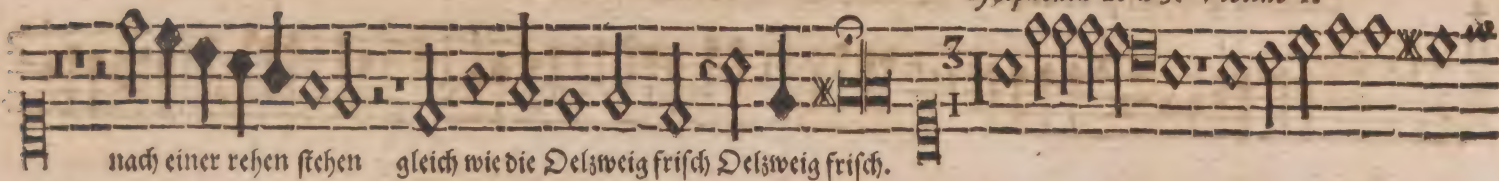 3
1
nach einer rehen stehen gleich wie die Oelzweig frisch Oelzweig frisch.